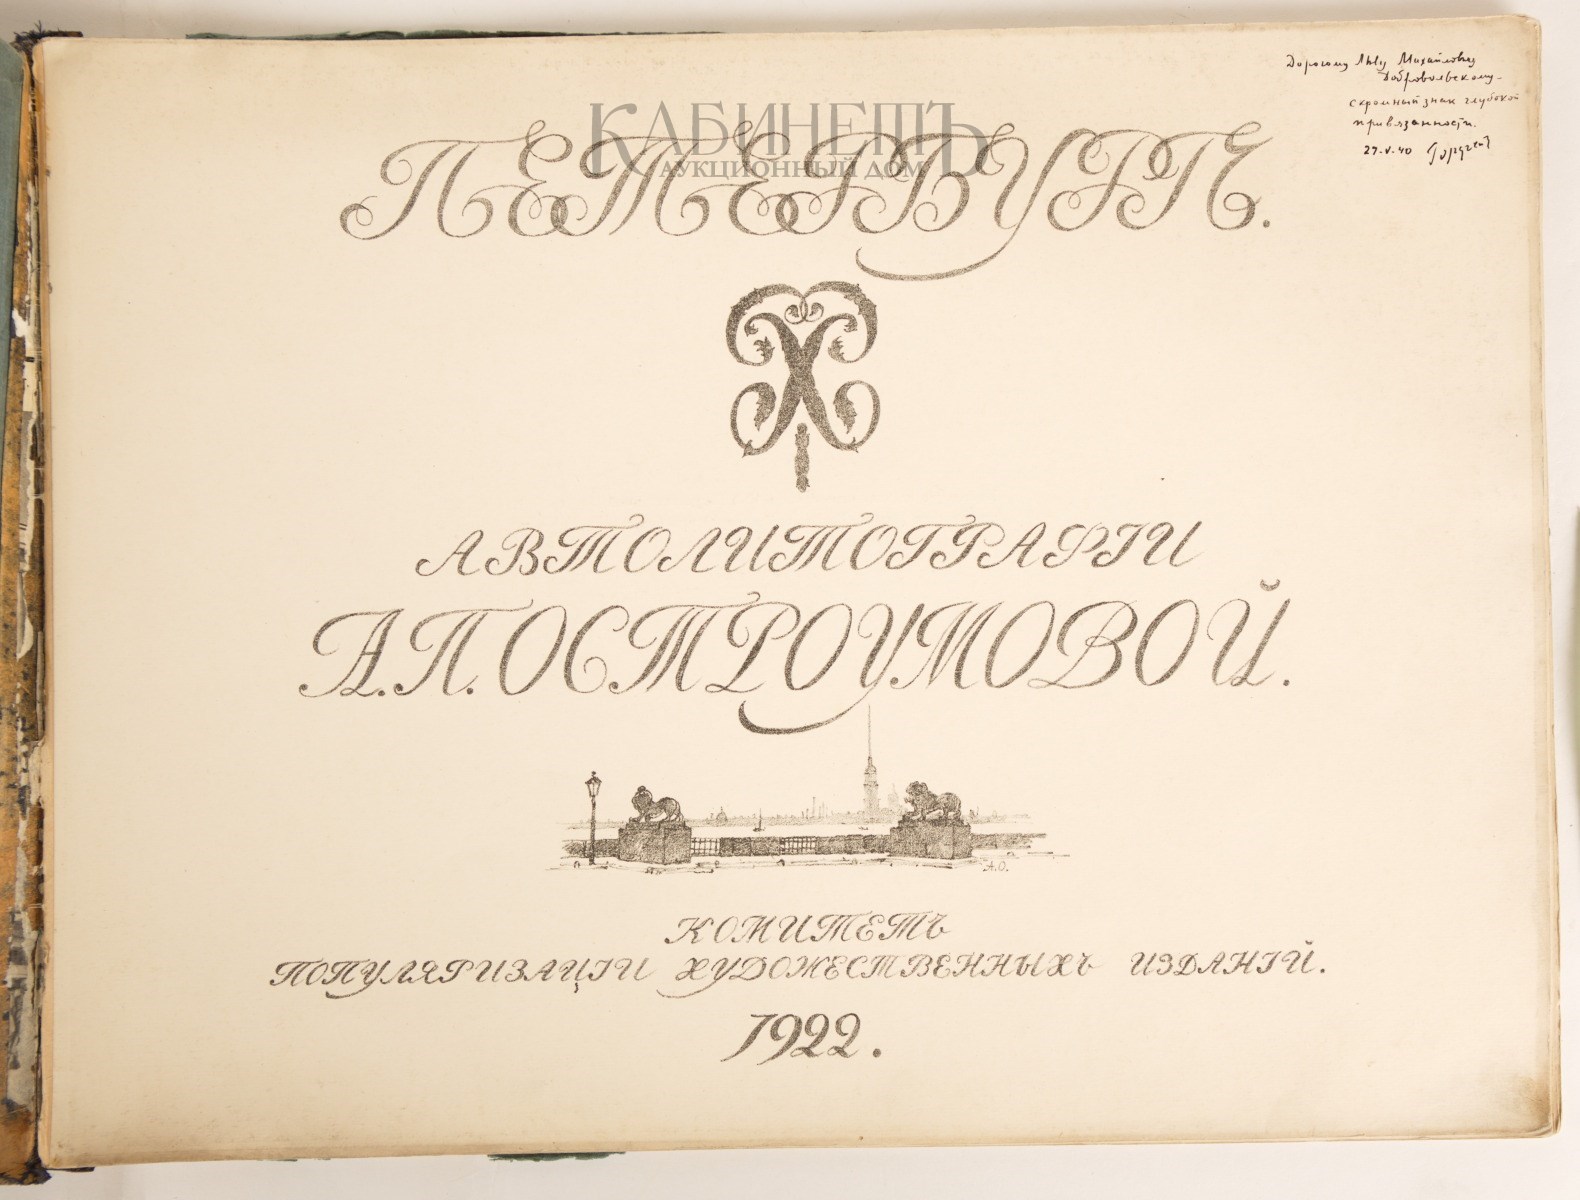 Дорогому Льву Михайловичу
Добровольскому -
скромный знак глубокой
привязанности.
27-V-40
КАБИНЕТЪ
АУКЦИОННЫЙ ДОМ
ПЕТЕРБУРГЪ.
АВТОЛИТОГРАФIИ
А.П.ОСТРОУМОВОЙ.
А.О.
КОМИТЕТЪ
ПОПУЛЯРИЗАЦIИ ХУДОЖЕСТВЕННЫХЪ ИЗДАНIЙ.
1922.